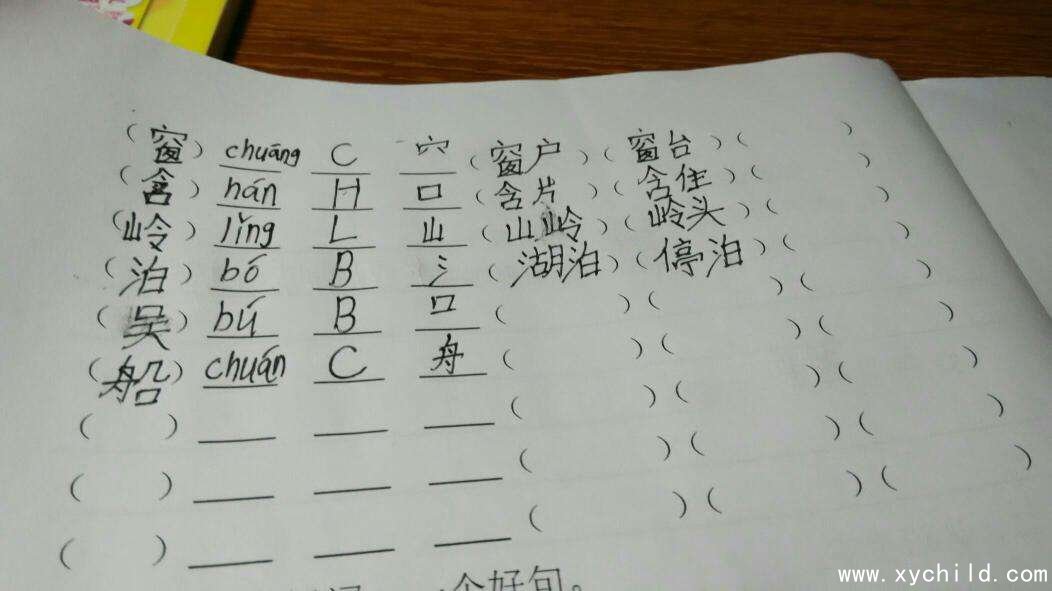 (窗) chuāng C 宀 (窗户)(窗台)( )
(含) hán H 口 (含片)(含住)( )
(岭) lǐng L 山 (山岭)(岭头)( )
(泊) bó B 氵 (湖泊)(停泊)( )
(吴) bú B 口 ( )( )( )
(船) chuán C 舟 ( )( )( )
( ) ___ ___ ___ ( )( )( )
( ) ___ ___ ___ ( )( )( )
( ) ___ ___ ___ ( )( )( )
个好句。
www.xychild.com